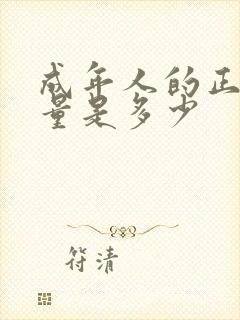 成年人的正
量是多少
符清